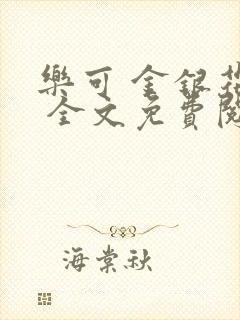 樂可 金銀花
全文免費閱
海棠秋